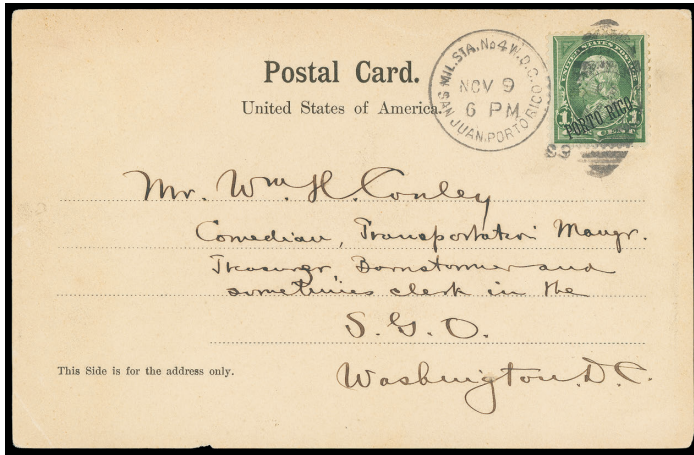 Postal Card.
United States of America.
MIL. STA. No 4 W. D. C.
NOV 9
6 PM
SAN JUAN. PORTO RICO
99
UNITED STATES POSTAGE
PORTO RICO
1 1
Mr. Wm H. Conley
Comedian, Transportation Mangr.
Treasurer, Barnstormer and
sometimes clerk in the
S. G. O.
Washington. D. C.
This Side is for the address only.